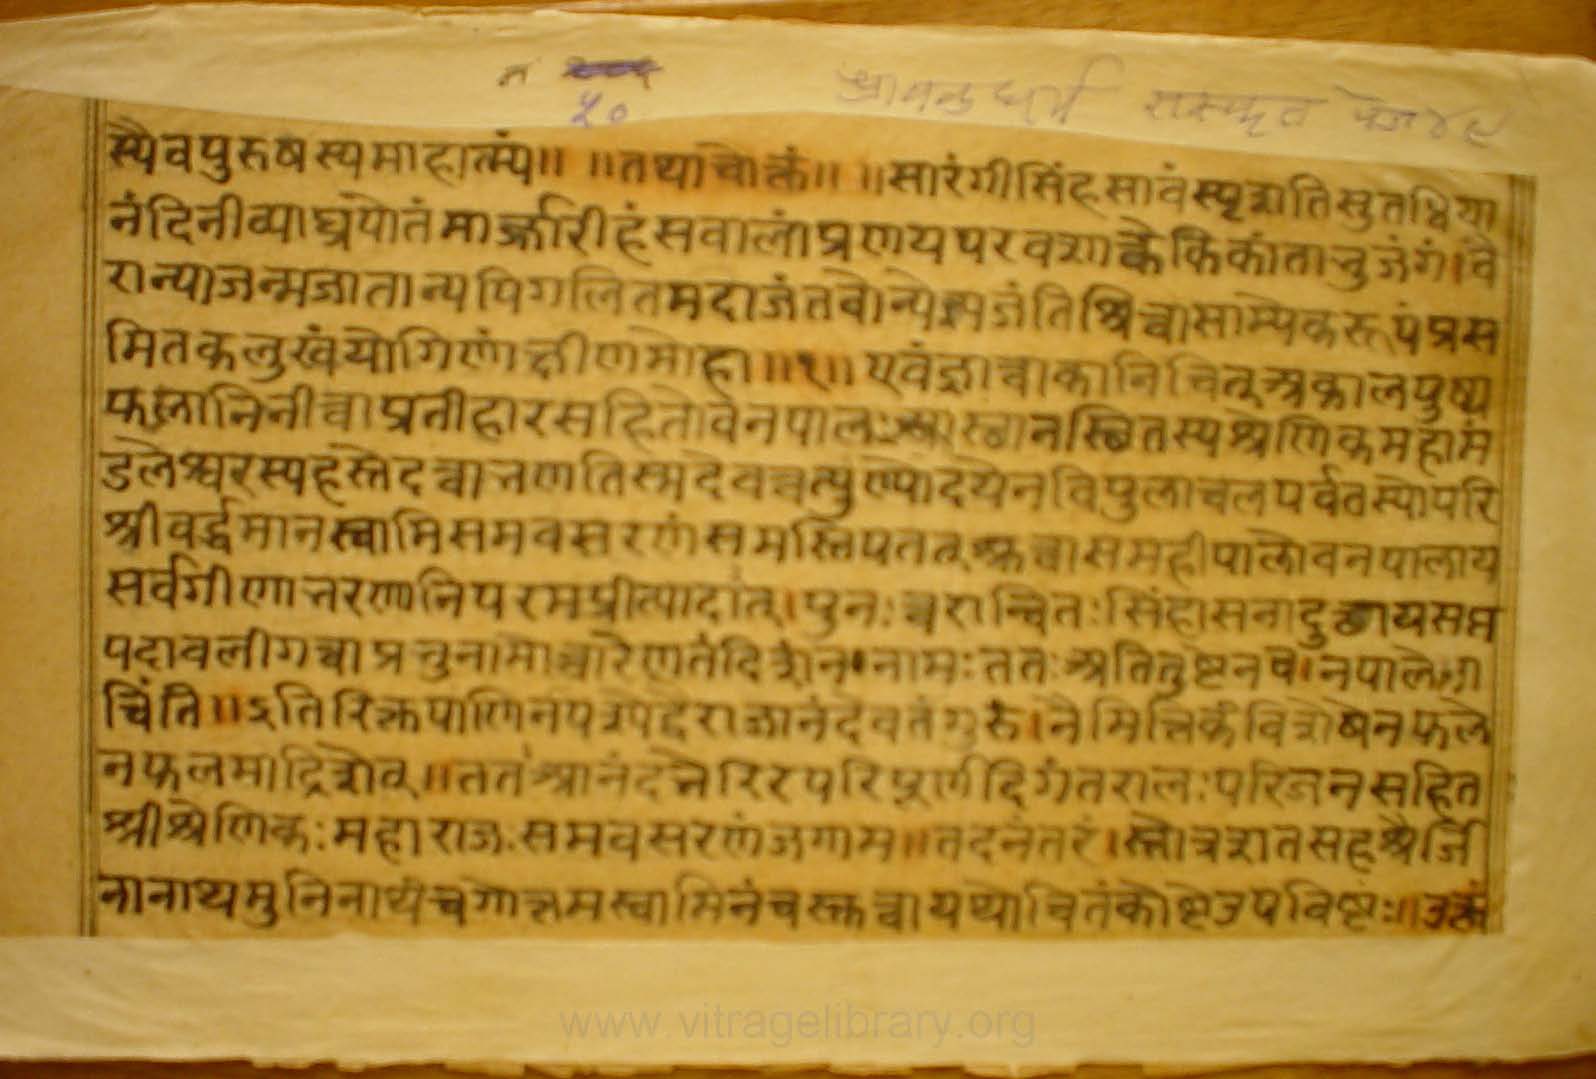 नं
५०
श्रावक धर्म संस्कृत पेज ४९
स्यैवपुरुषस्यमाहात्म्यं॥ ॥तथाचोक्तं॥ ॥सारंगीसिंहसावंस्पृशतिसुतधिया
नंदिनीव्याघ्रपोतंमार्ज्जारीहंसवालंप्रणयपरवशाकेकिकांताभुजंगं।वै
रान्याजन्मजातान्यपिगलितमदाजंतवोन्येत्यजंतिश्रित्वासाम्यैकरूपंप्रस
मितकलुखंयोगिणंक्षीणमोहा॥१॥ एवंज्ञात्वाकानिचित्अकालपुष्प
फलानिनीत्वाप्रतीहारसहितोवनपालःआस्छानस्छितस्यश्रेणिकमहामं
डलेश्वरस्यहस्तेदत्वाभणतिस्मदेवत्वत्पुण्योदयेनविपुलाचलपर्वतस्योपरि
श्रीवर्द्धमानस्वामिसमवसरणंसमस्तिपतत्श्रुत्वासमहीपालोवनपालाय
सर्वगीणाभरणानिपरमप्रीत्यादात्।पुनःत्वरान्वितःसिंहासनादुछायसप्त
पदावलीगत्वाप्रभुनामोच्चारेणतंदिशंननामःततःअतितुष्टेनवनपालेन
चिंति॥इतिरिक्तपाणिर्नपश्येद्देराजानंदेवतंगुरुं।नैमित्तिकंविशेषेनफले
नफलमादिशेत्॥ततआनंदभेरिरपरिपूर्णदिगंतरालःपरिजनसहित
श्रीश्रेणिकःमहाराजःसमवसरणंजगाम॥तदनंतरं।स्तोत्रशतसहश्रैर्जि
नानाथमुनिनाथंचगोत्तमस्वामिनंचस्तुत्वायथोचितंकोष्टेउपविष्टः॥उक्तं
www.vitragelibrary.org